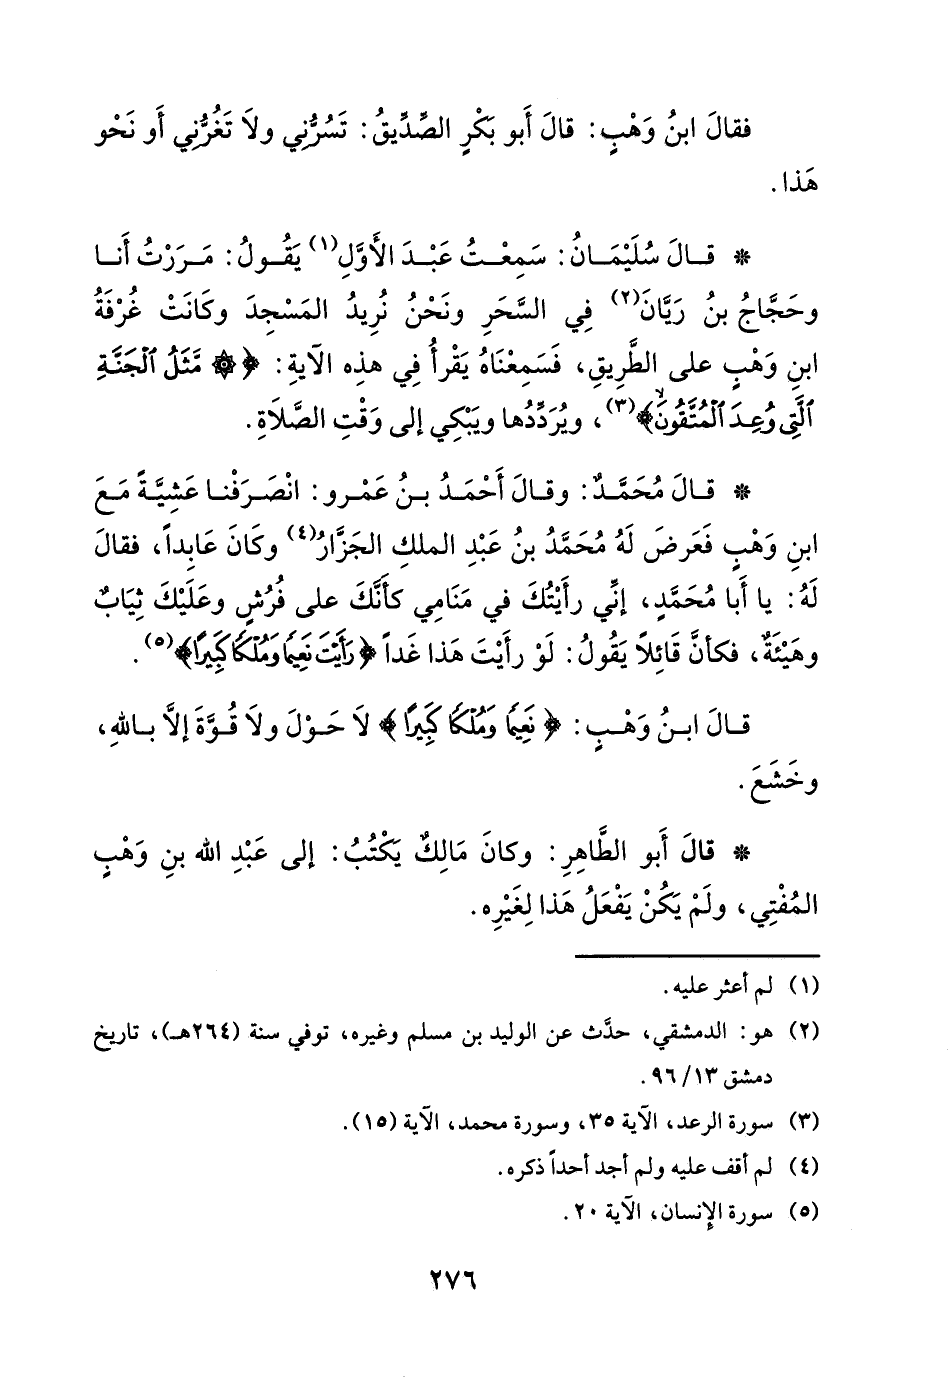 فقالَ ابنُ وَهْبٍ: قالَ أَبو بَكْرٍ الصِّدِّيقُ: تَسُرُّنِي ولاَ تَغُرُّنِي أَو نَحْو
هَذا.
* قـالَ سُلَيْمَـانُ: سَمِعْـتُ عَبْـدَ الأَوَّلِ(١) يَقُـولُ: مَـرَرْتُ أَنـا
وحَجَّاجُ بنُ رَيَّانَ(٢) فِي السَّحَرِ ونَحْنُ نُرِيدُ المَسْجِدَ وكَانَتْ غُرْفَةُ
ابنِ وَهْبٍ على الطَّرِيقِ، فَسَمِعْنَاهُ يَقْرأُ فِي هذِه الآيةِ: ﴿ ۞ مَّثَلُ ٱلْجَنَّةِ
ٱلَّتِى وُعِدَ ٱلْمُتَّقُونَۖ﴾(٣)، ويُرَدِّدُها ويَبْكِي إلى وَقْتِ الصَّلاَةِ.
* قـالَ مُحَمَّـدٌ: وقـالَ أَحْمَـدُ بـنُ عَمْـرو: انْصَـرَفْنـا عَشِيَّـةً مَـعَ
ابنِ وَهْبٍ فَعَرضَ لَهُ مُحَمَّدُ بنُ عَبْدِ الملكِ الجَزَّارُ(٤) وكَانَ عَابِداً، فقالَ
لَهُ: يا أَبا مُحَمَّدٍ، إنِّي رأَيْتُكَ في مَنَامِي كأَنَّكَ على فُرُشٍ وعَلَيْكَ ثِيَابٌ
وهَيْئَةٌ، فكأنَّ قَائِلاً يَقُولُ: لَوْ رأَيْتَ هَذا غَداً ﴿رَأَيْتَ نَعِيمًا وَمُلْكًا كَبِيرًا﴾(٥).
قـالَ ابـنُ وَهْـبٍ: ﴿ نَعِيمًا وَمُلْكًا كَبِيرًا ﴾ لاَ حَـوْلَ ولاَ قُـوَّةَ إلاَّ بـاللهِ،
وخَشَعَ.
* قالَ أَبو الطَّاهِرِ: وكانَ مَالِكٌ يَكْتُبُ: إلى عَبْدِ الله بنِ وَهْبٍ
المُفْتِي، ولَمْ يَكُنْ يَفْعَلُ هَذا لِغَيْرِه.
(١) لم أعثر عليه.
(٢) هو: الدمشقي، حدَّث عن الوليد بن مسلم وغيره، توفي سنة (٢٦٤هـ)، تاريخ
دمشق ١٣/ ٩٦.
(٣) سورة الرعد، الآية ٣٥، وسورة محمد، الآية (١٥).
(٤) لم أقف عليه ولم أجد أحداً ذكره.
(٥) سورة الإِنسان، الآية ٢٠.
٢٧٦